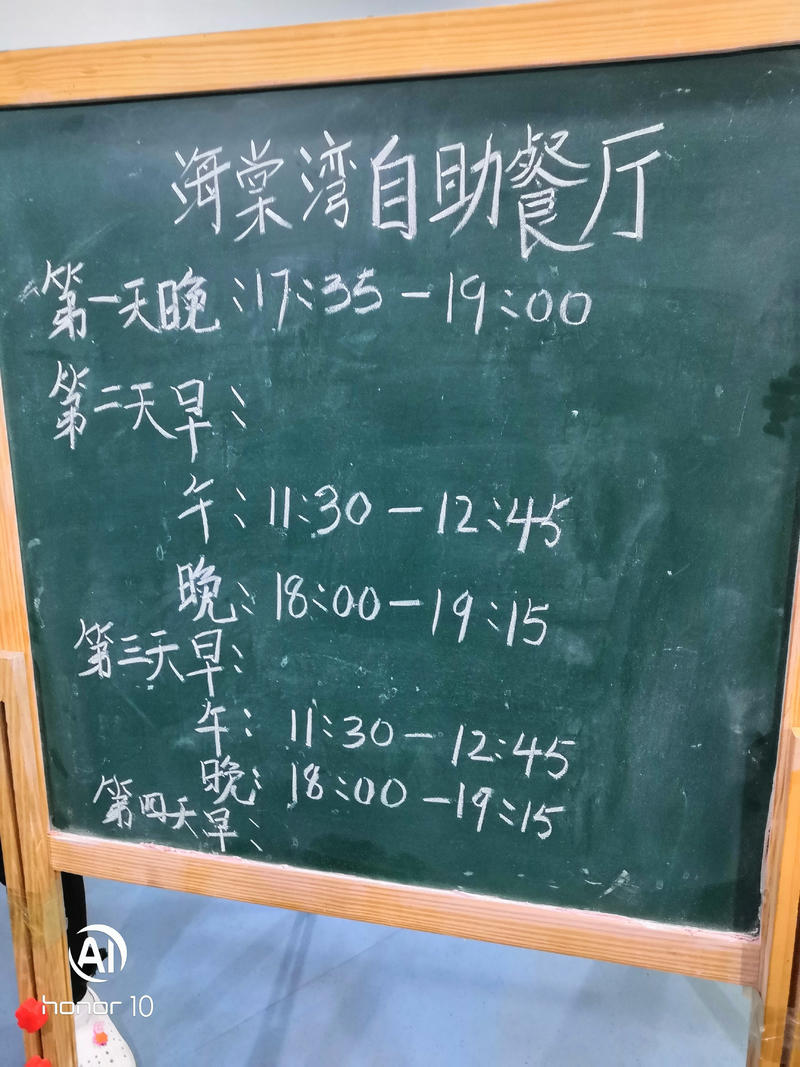 海棠湾自助餐厅
第一天晚:17:35-19:00
第二天早:
午:11:30-12:45
晚:18:00-19:15
第三天早:
午:11:30-12:45
晚:18:00-19:15
第四天早:
AI
honor 10